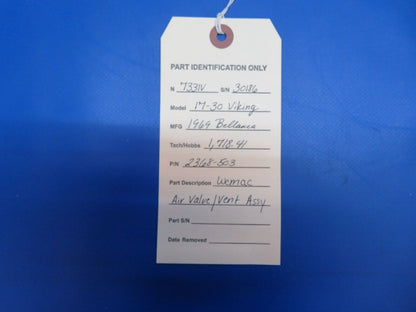 PART IDENTIFICATION ONLY
N 7331V S/N 30186
Model 17-30 Viking
MFG 1969 Bellanca
Tach/Hobbs 1,718.41
P/N 2368-503
Part Description Wemac
Air Valve/Vent Assy
Part S/N
Date Removed